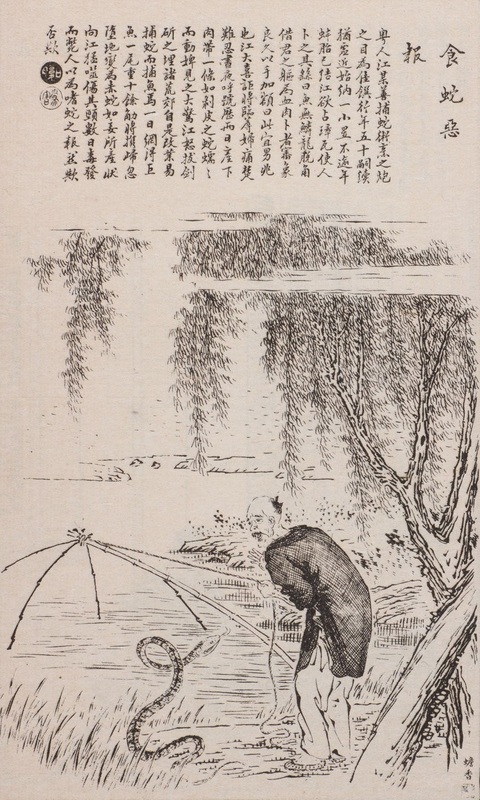 食蛇惡
報
粵人江某善捕蛇術烹之炮
之目為佳饌行年五十嗣續
猶虛近始納一小星不逾年
蚌胎已結江欲占璋瓦使人
卜之其繇曰魚無鱗龍脫角
借君之軀為血肉卜者審象
良久以手加額曰此宜男兆
也江大喜詎將臨蓐婦痛楚
難忍晝夜呼號歷兩日產下
肉帶一條如剝皮之蛇蠕々
而動婢見之大驚江怒拔劍
斫之埋諸荒郊自是改業易
捕蛇而捕魚焉一日網得巨
魚一尾重十餘觔將攜歸忽
墮地變為赤蛇如妾所產狀
向江猛噬傷其頭數日毒發
而斃人以為嗜蛇之報然歟
否歟
蟾香